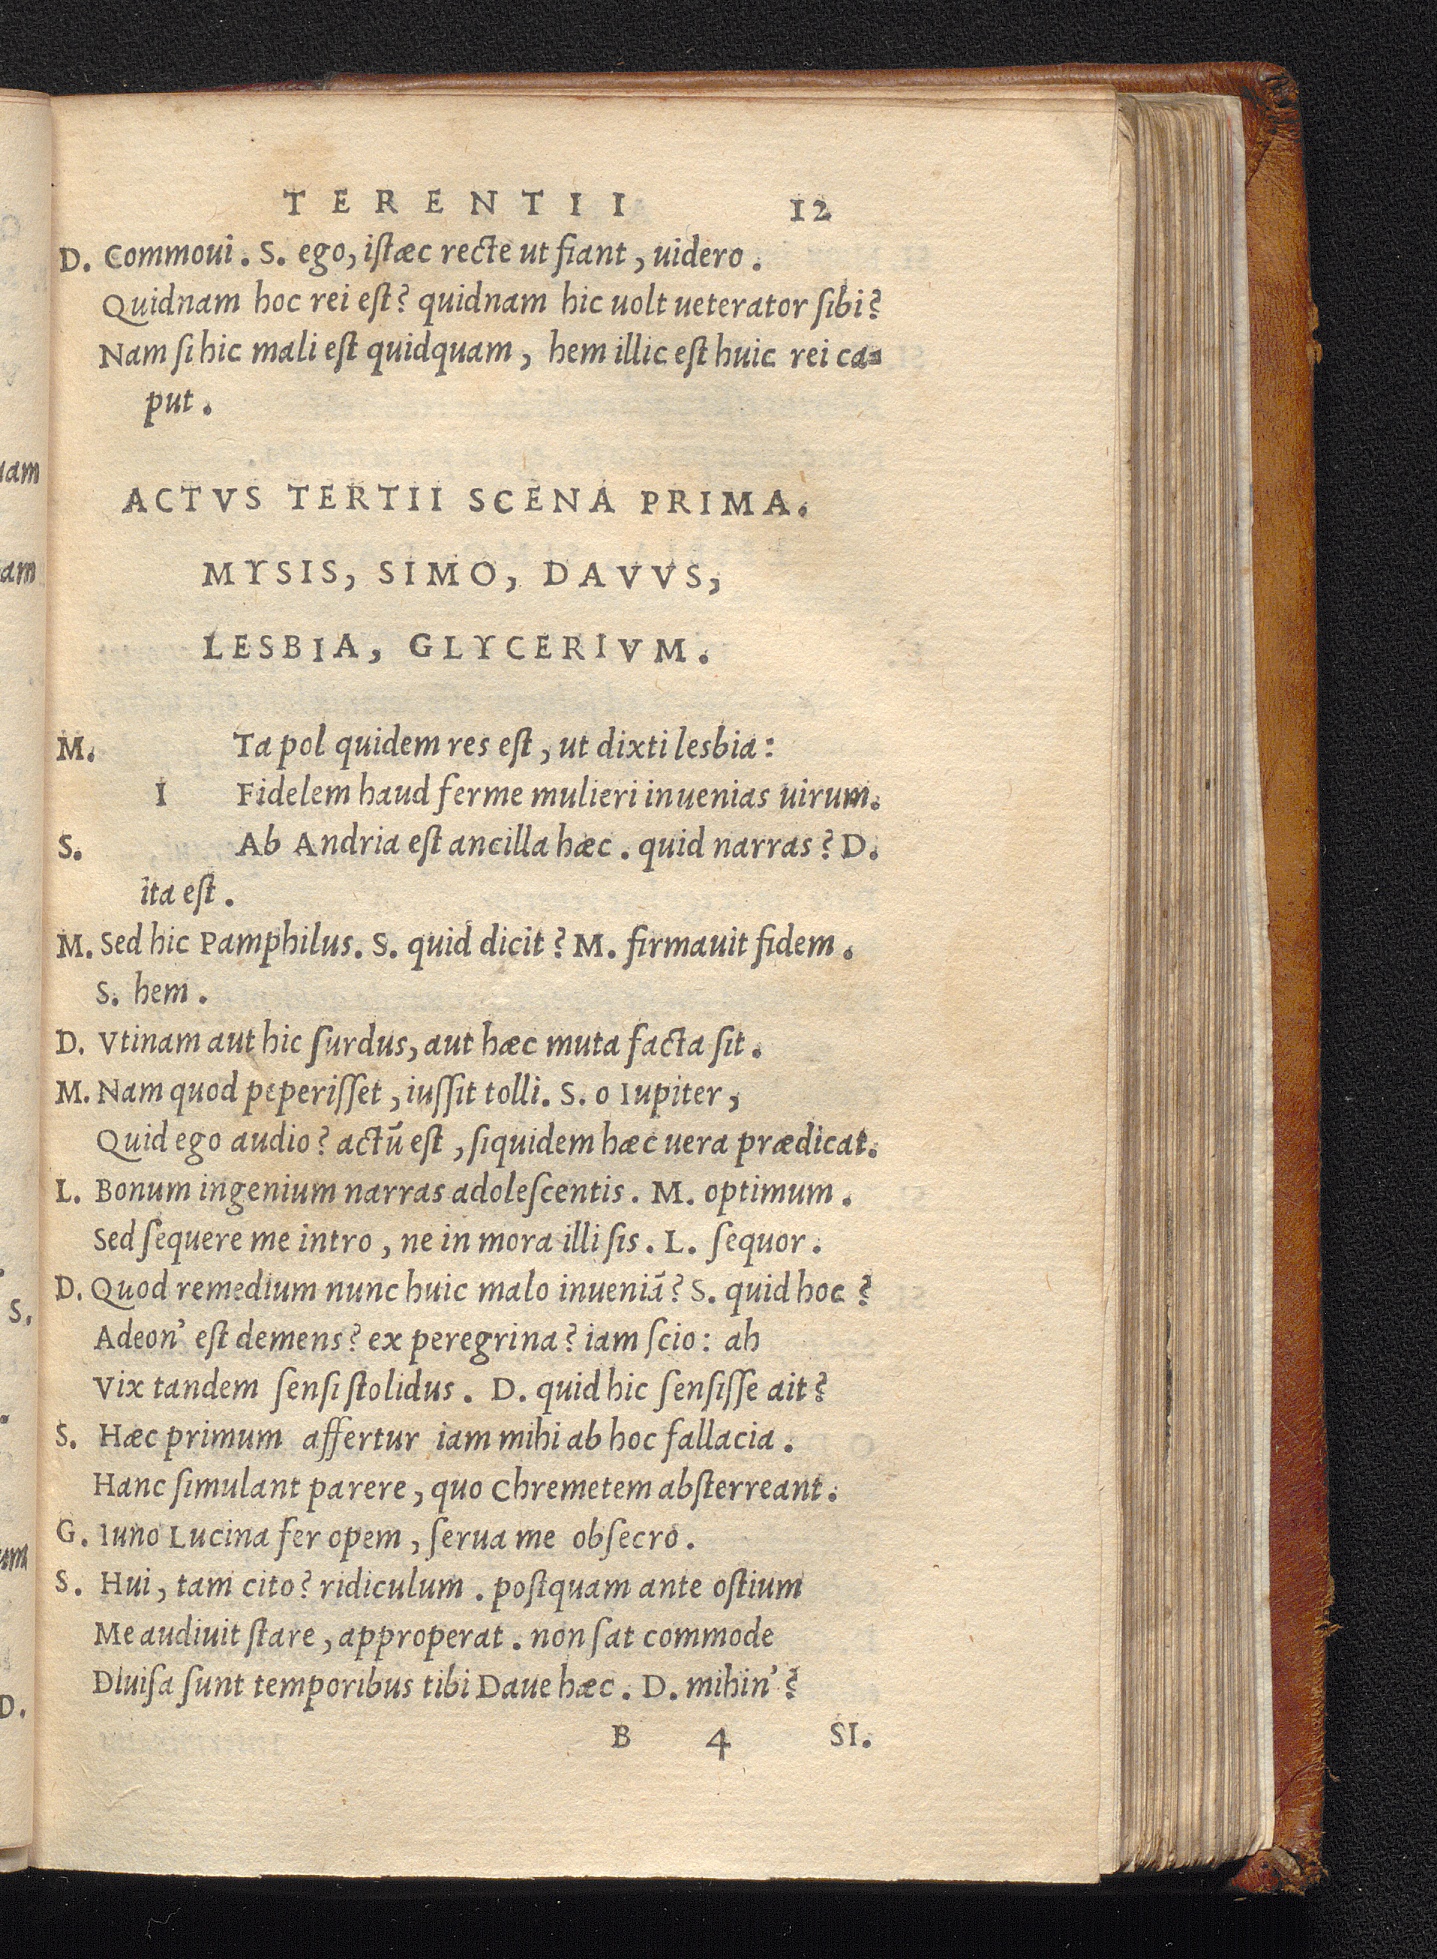 TERENTII 12
D. Commoui. S. ego, istæc recte ut fiant, uidero.
Quidnam hoc rei est? quidnam hic uolt ueterator sibi?
Nam si hic mali est quidquam, hem illic est huic rei ca=
put.
ACTVS TERTII SCENA PRIMA.
MYSIS, SIMO, DAVVS,
LESBIA, GLYCERIVM.
M. Ta pol quidem res est, ut dixti lesbia:
I Fidelem haud ferme mulieri inuenias uirum.
S. Ab Andria est ancilla hæc. quid narras? D.
ita est.
M. Sed hic Pamphilus. S. quid dicit? M. firmauit fidem.
S. hem.
D. Vtinam aut hic surdus, aut hæc muta facta sit.
M. Nam quod peperisset, iussit tolli. S. o Iupiter,
Quid ego audio? actū est, siquidem hæc uera prædicat.
L. Bonum ingenium narras adolescentis. M. optimum.
Sed sequere me intro, ne in mora illi sis. L. sequor.
D. Quod remedium nunc huic malo inueniā? S. quid hoc?
Adeon' est demens? ex peregrina? iam scio: ah
Vix tandem sensi stolidus. D. quid hic sensisse ait?
S. Hæc primum affertur iam mihi ab hoc fallacia.
Hanc simulant parere, quo Chremetem absterreant.
G. Iuno Lucina fer opem, serua me obsecro.
S. Hui, tam cito? ridiculum. postquam ante ostium
Me audiuit stare, approperat. non sat commode
Diuisa sunt temporibus tibi Daue hæc. D. mihin'?
B 4 SI.
uam
am
S.
um
D.